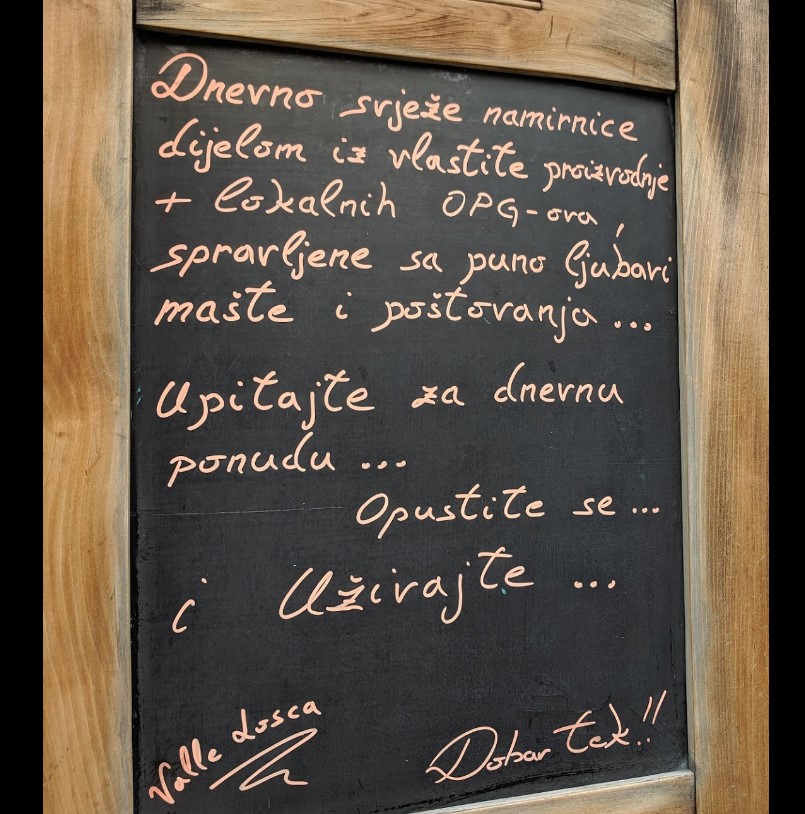 Dnevno svježe namirnice
dijelom iz vlastite proizvodnje
+ lokalnih OPG-ova,
spravljene sa puno ljubavi
mašte i poštovanja ...
Upitajte za dnevnu
ponudu ...
Opustite se ...
i Uživajte ...
Valle Losca
Dobar tek!!